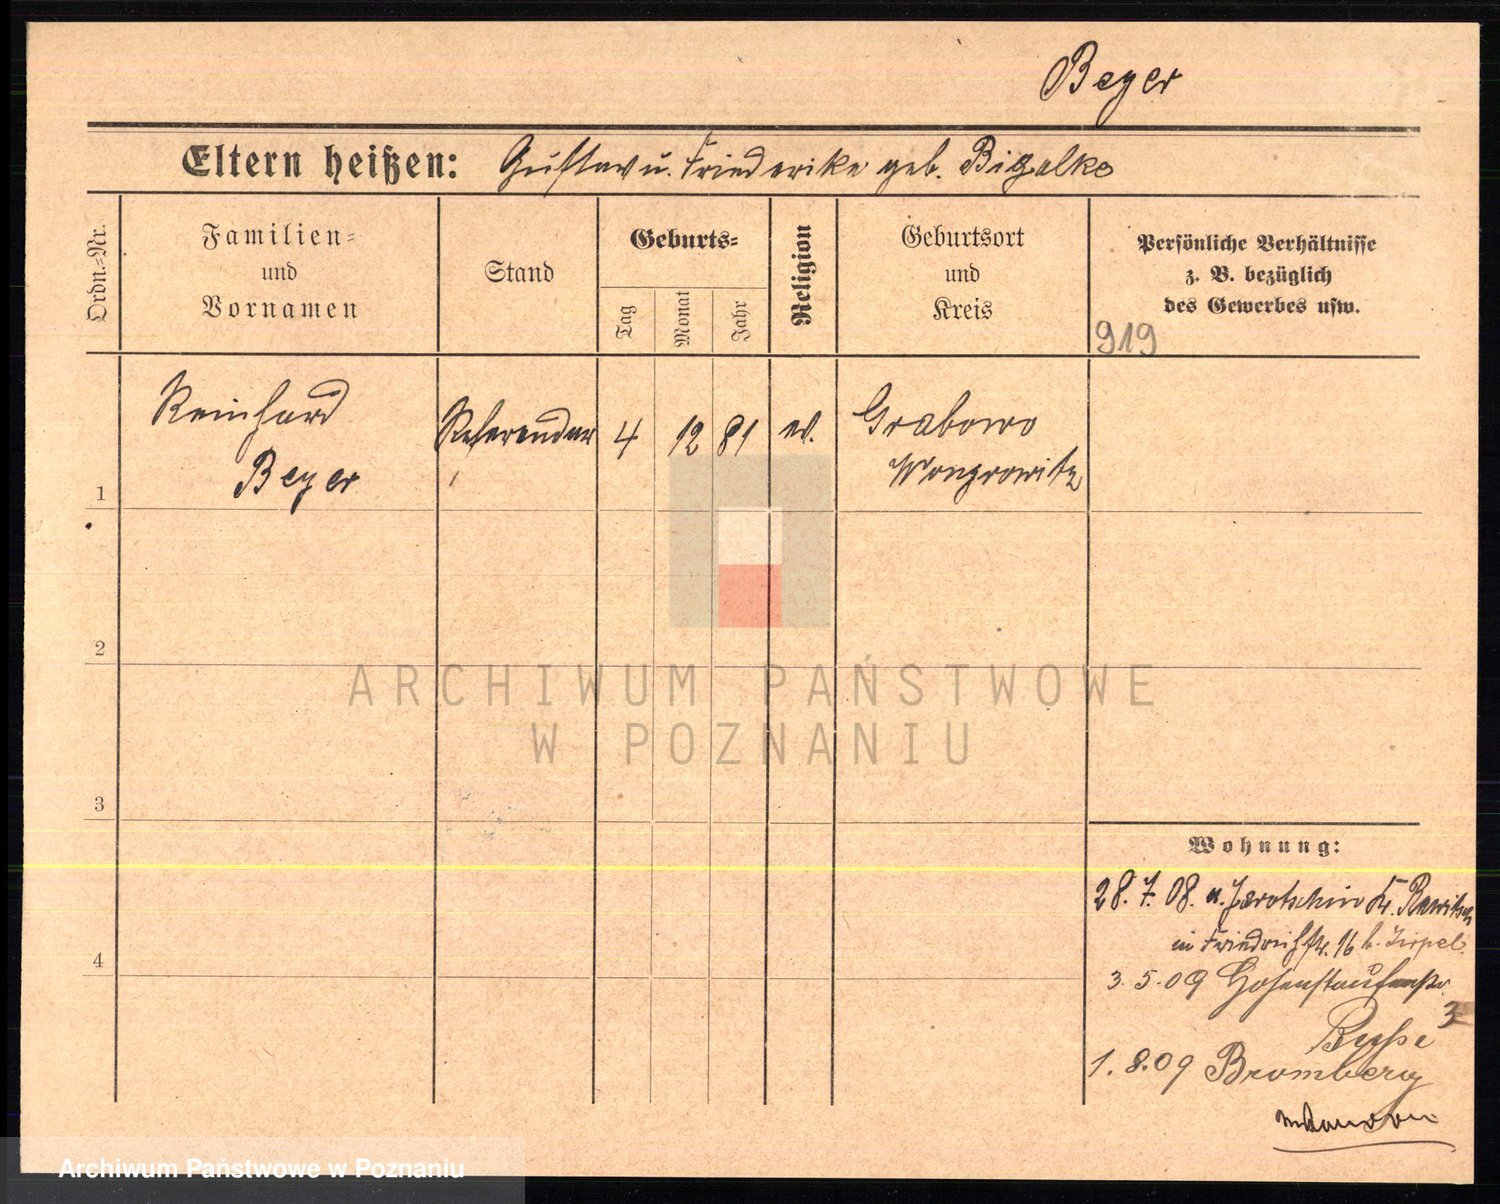 Beyer
Eltern heißen: Gustav u. Friederike geb. Bigalke
Ordn.-Nr.
Familien-
und
Vornamen
Stand
Geburts-
Tag
Monat
Jahr
Religion
Geburtsort
und
Kreis
Persönliche Verhältnisse
z. B. bezüglich
des Gewerbes usw.
919
Reinhard
Beyer
Referendar
4
12
81
ev.
Grabowo
Wongrowitz
1
2
3
4
ARCHIWUM PAŃSTWOWE
W POZNANIU
Wohnung:
28. 7. 08. a. Jarotschin Kr. Rawitsch
in Friedrichstr. 16 b. Zirpel
3. 5. 09 Hohenstaufenstr.
3
Busse
1. 8. 09 Bromberg
Archiwum Państwowe w Poznaniu